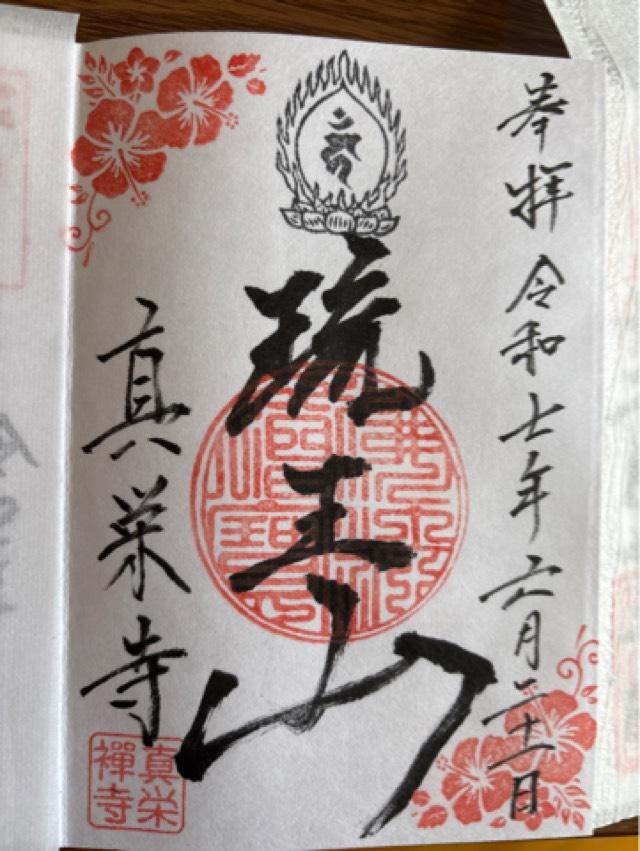 奉拝 令和七年六月二十一日
琉王山
真栄寺
真栄
禪寺